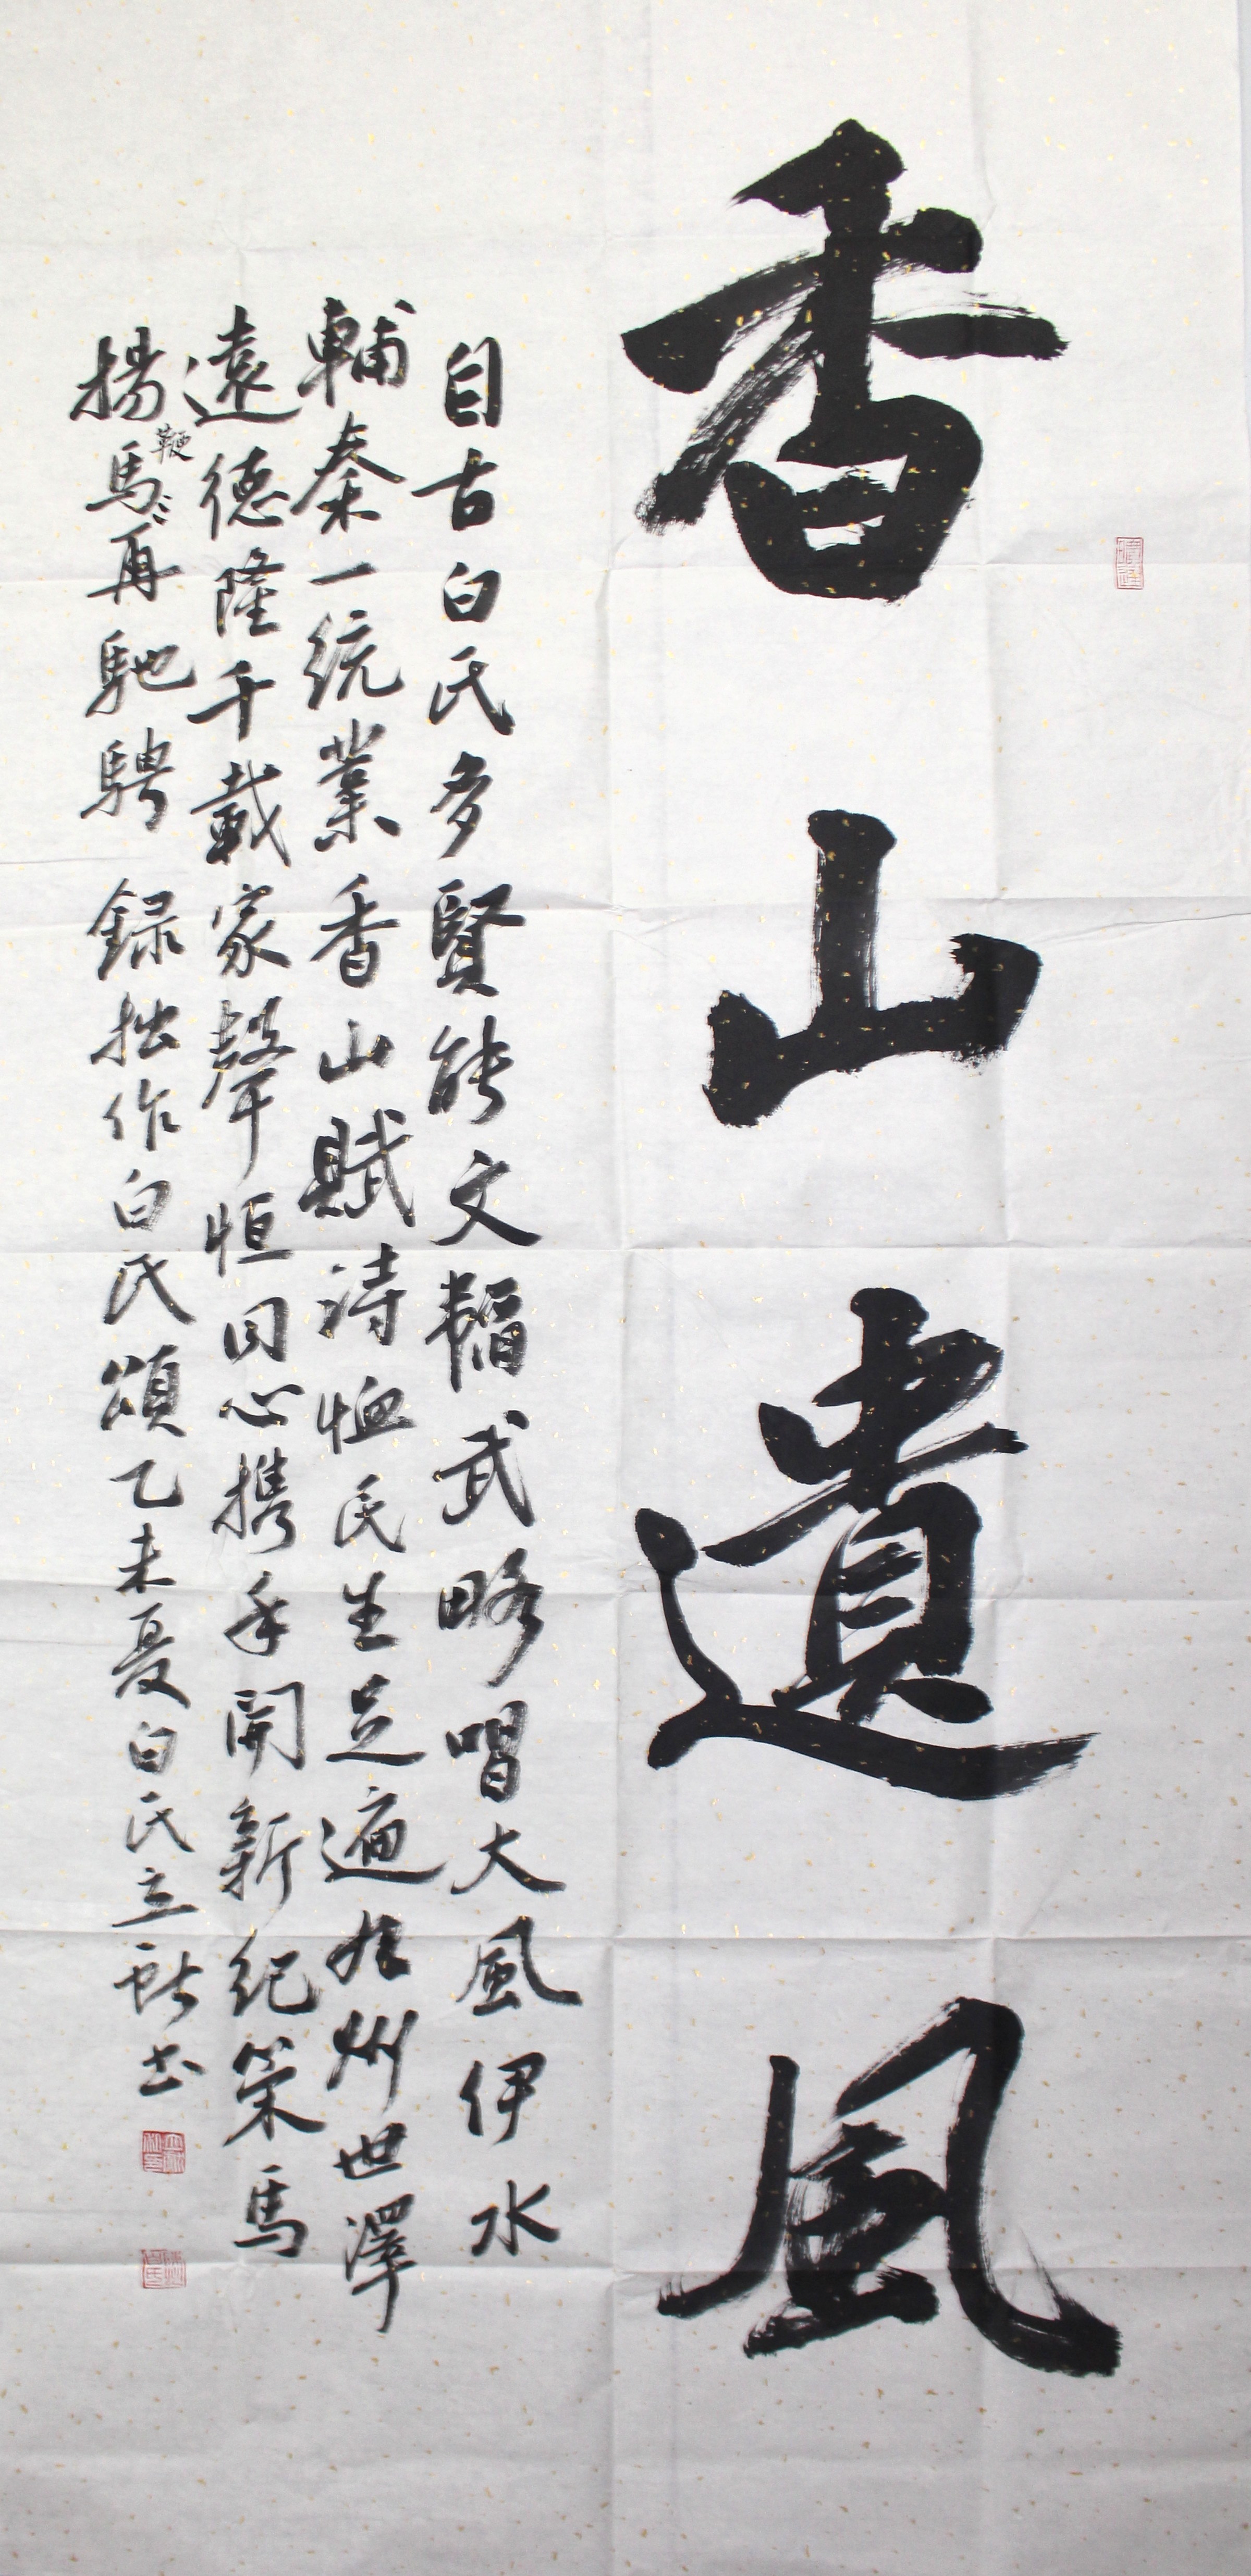 香山遺風
自古白氏多賢能文韜武略唱大風伊水
輔秦一統業香山賦詩恤民生足遍九州世澤
遠德隆千載家聲恒同心攜手開新紀策馬
揚馬鞭再馳騁 録拙作白氏頌乙未夏白氏立獻书